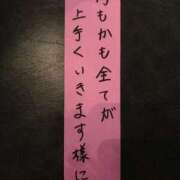 何もかも全てが
上手くいきます様に